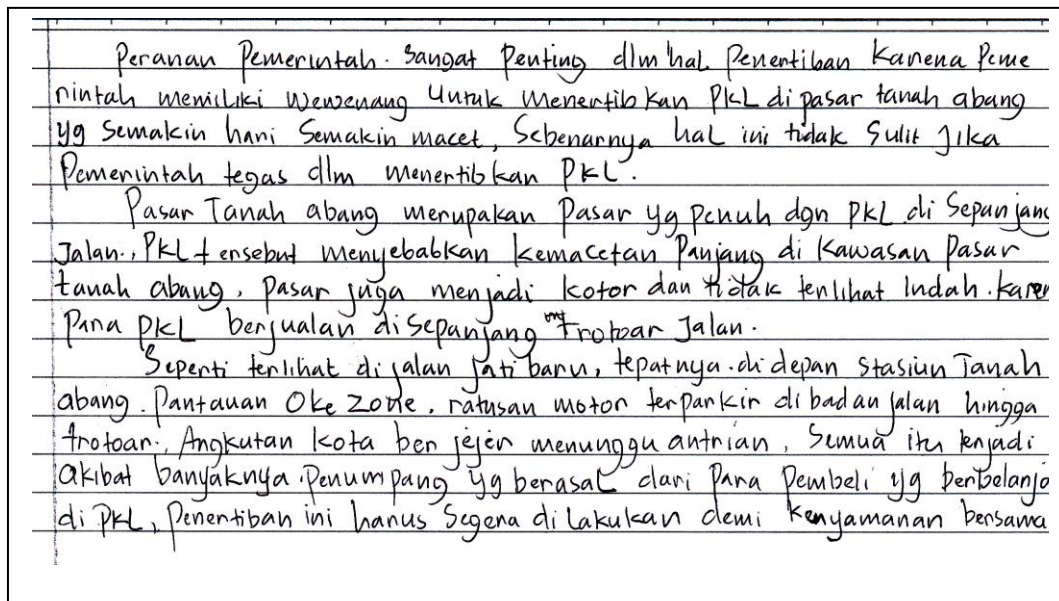 Peranan Pemerintah. Sangat Penting dlm hal Penertiban Karena Peme
rintah memiliki wewenang Untuk Menertibkan PKL di pasar tanah abang
yg Semakin hari Semakin macet, Sebenarnya hal ini tidak Sulit Jika
Pemerintah tegas dlm menertibkan PKL.
Pasar Tanah abang merupakan Pasar yg penuh dgn PKL di Sepanjang
Jalan., PKL tersebut menyebabkan kemacetan Panjang di Kawasan Pasar
tanah abang, pasar juga menjadi kotor dan tidak terlihat Indah. karen
Para PKL berjualan di Sepanjang trotoar Jalan.
Seperti terlihat di jalan jati baru, tepatnya. di depan stasiun Tanah
abang. Pantauan Oke Zone, ratusan motor terparkir di badan jalan hingga
trotoar., Angkutan kota ber jejer menunggu antrian, Semua itu terjadi
akibat banyaknya. Penumpang yg berasal dari Para Pembeli yg berbelanja
di PKL, Penertiban ini harus Segera di Lakukan demi kenyamanan bersama